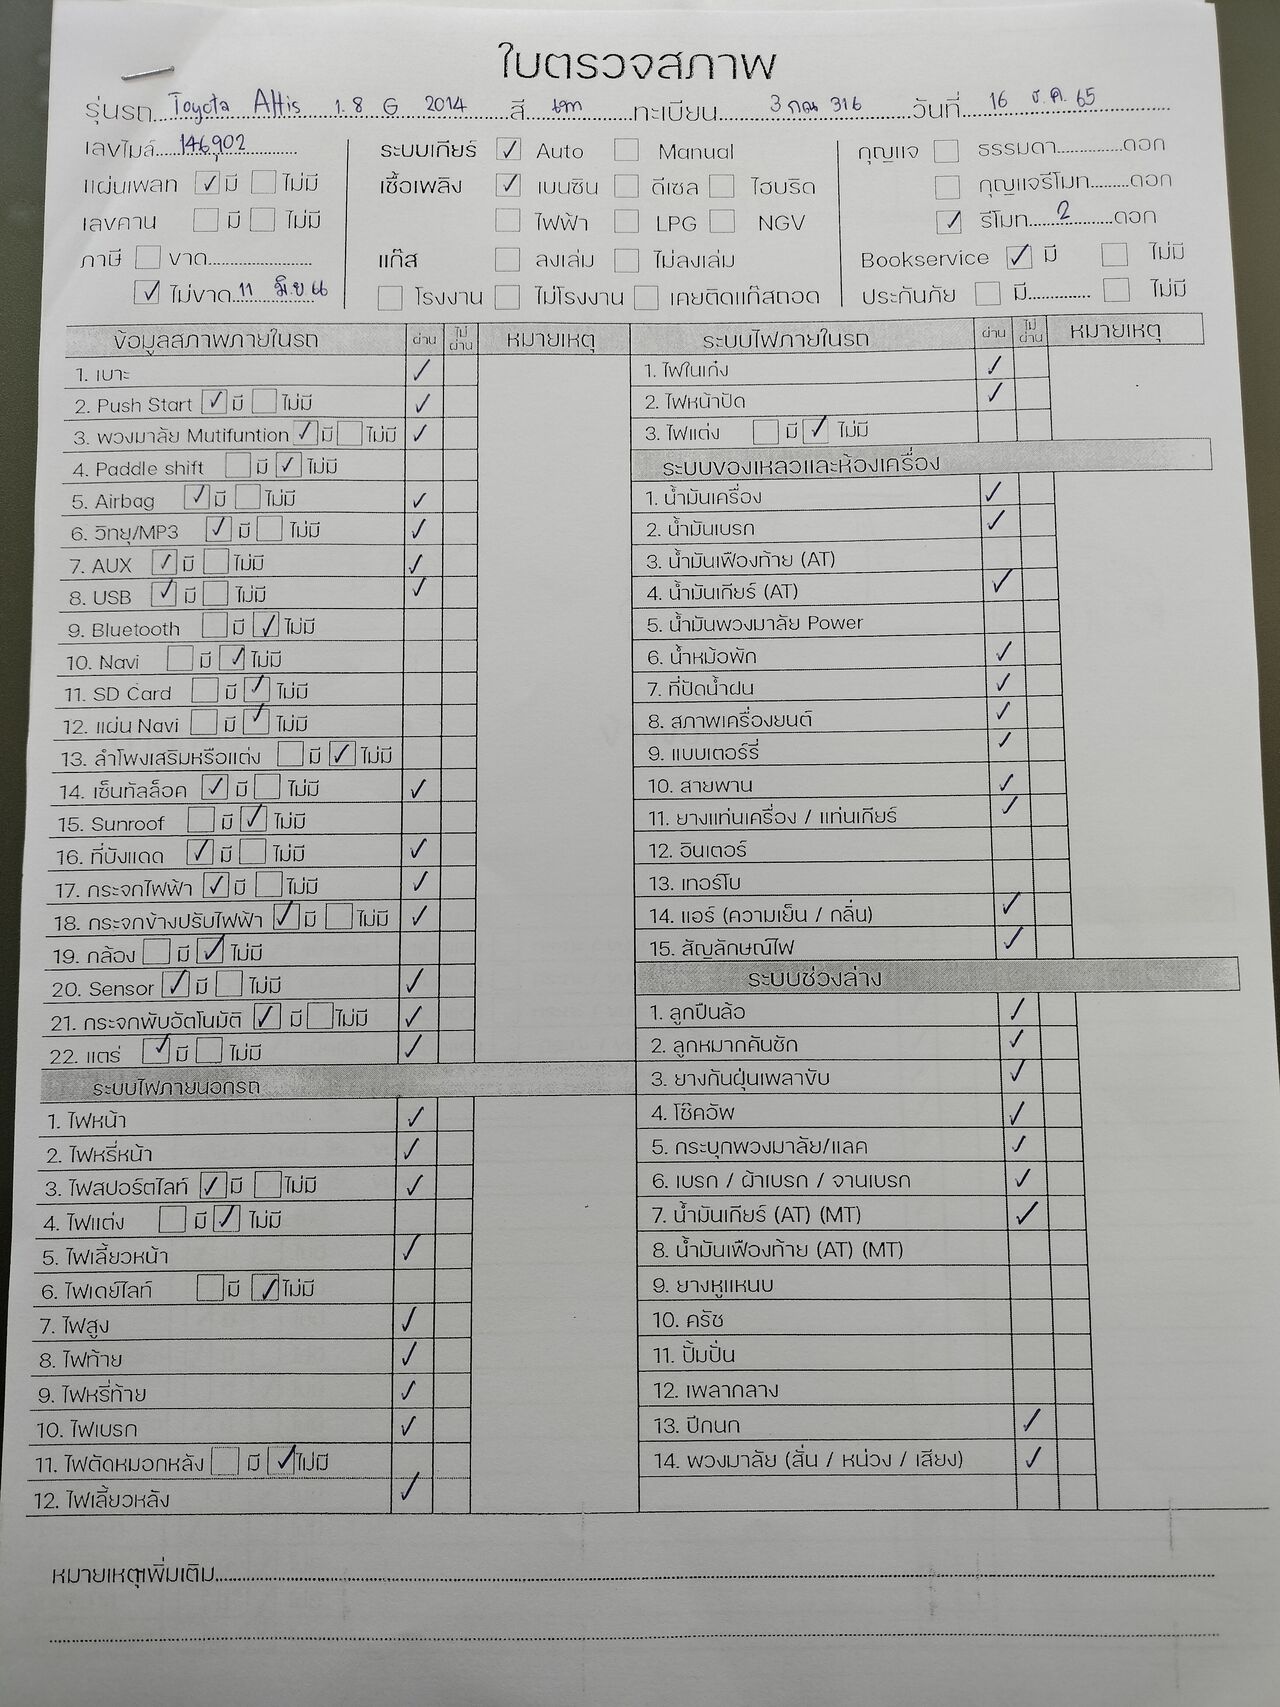 ใบตรวจสภาพ
รุ่นรถ Toyota Altis 1.8 G 2014 สี เทา ทะเบียน 3 กณ 316 วันที่ 16 ธ.ค. 65
เลขไมล์ 146,902 ระบบเกียร์ ☑ Auto ☐ Manual กุญแจ ☐ ธรรมดา ดอก
แผ่นเพลท ☑ มี ☐ ไม่มี เชื้อเพลิง ☑ เบนซิน ☐ ดีเซล ☐ ไฮบริด ☐ กุญแจรีโมท ดอก
เลขคาน ☐ มี ☐ ไม่มี ☐ ไฟฟ้า ☐ LPG ☐ NGV ☑ รีโมท 2 ดอก
ภาษี ☐ ขาด แก๊ส ☐ ลงเล่ม ☐ ไม่ลงเล่ม Bookservice ☑ มี ☐ ไม่มี
☑ ไม่ขาด 11 ☐ โรงงาน ☐ ไม่โรงงาน ☐ เคยติดแก๊สถอด ประกันภัย ☐ มี ☐ ไม่มี
ข้อมูลสภาพภายในรถ ผ่าน ไม่ผ่าน หมายเหตุ
1. เบาะ ✓
2. Push Start ☑ มี ☐ ไม่มี ✓
3. พวงมาลัย Mutifuntion ☑ มี ☐ ไม่มี ✓
4. Paddle shift ☐ มี ☑ ไม่มี
5. Airbag ☑ มี ☐ ไม่มี ✓
6. วิทยุ/MP3 ☑ มี ☐ ไม่มี ✓
7. AUX ☑ มี ☐ ไม่มี ✓
8. USB ☑ มี ☐ ไม่มี ✓
9. Bluetooth ☐ มี ☑ ไม่มี
10. Navi ☐ มี ☑ ไม่มี
11. SD Card ☐ มี ☑ ไม่มี
12. แผ่น Navi ☐ มี ☑ ไม่มี
13. ลำโพงเสริมหรือแต่ง ☐ มี ☑ ไม่มี
14. เซ็นทัลล็อค ☑ มี ☐ ไม่มี ✓
15. Sunroof ☐ มี ☑ ไม่มี
16. ที่บังแดด ☑ มี ☐ ไม่มี ✓
17. กระจกไฟฟ้า ☑ มี ☐ ไม่มี ✓
18. กระจกข้างปรับไฟฟ้า ☑ มี ☐ ไม่มี ✓
19. กล้อง ☐ มี ☑ ไม่มี
20. Sensor ☑ มี ☐ ไม่มี ✓
21. กระจกพับอัตโนมัติ ☑ มี ☐ ไม่มี ✓
22. แตร่ ☑ มี ☐ ไม่มี ✓
ระบบไฟภายนอกรถ
1. ไฟหน้า ✓
2. ไฟหรี่หน้า ✓
3. ไฟสปอร์ตไลท์ ☑ มี ☐ ไม่มี ✓
4. ไฟแต่ง ☐ มี ☑ ไม่มี
5. ไฟเลี้ยวหน้า ✓
6. ไฟเดย์ไลท์ ☐ มี ☑ ไม่มี
7. ไฟสูง ✓
8. ไฟท้าย ✓
9. ไฟหรี่ท้าย ✓
10. ไฟเบรก ✓
11. ไฟตัดหมอกหลัง ☐ มี ☑ ไม่มี
12. ไฟเลี้ยวหลัง ✓
ระบบไฟภายในรถ ผ่าน ไม่ผ่าน หมายเหตุ
1. ไฟในเก๋ง ✓
2. ไฟหน้าปัด ✓
3. ไฟแต่ง ☐ มี ☑ ไม่มี
ระบบของเหลวและห้องเครื่อง
1. น้ำมันเครื่อง ✓
2. น้ำมันเบรก ✓
3. น้ำมันเฟืองท้าย (AT)
4. น้ำมันเกียร์ (AT) ✓
5. น้ำมันพวงมาลัย Power
6. น้ำหม้อพัก ✓
7. ที่ปัดน้ำฝน ✓
8. สภาพเครื่องยนต์ ✓
9. แบบเตอร์รี่ ✓
10. สายพาน ✓
11. ยางแท่นเครื่อง / แท่นเกียร์ ✓
12. อินเตอร์
13. เทอร์โบ
14. แอร์ (ความเย็น / กลิ่น) ✓
15. สัญลักษณ์ไฟ ✓
ระบบช่วงล่าง
1. ลูกปืนล้อ ✓
2. ลูกหมากคันชัก ✓
3. ยางกันฝุ่นเพลาขับ ✓
4. โช๊คอัพ ✓
5. กระบุกพวงมาลัย/แลค ✓
6. เบรก / ผ้าเบรก / จานเบรก ✓
7. น้ำมันเกียร์ (AT) (MT) ✓
8. น้ำมันเฟืองท้าย (AT) (MT)
9. ยางหูแหนบ
10. ครัช
11. ปั้มปั่น
12. เพลากลาง
13. ปีกนก ✓
14. พวงมาลัย (สั่น / หน่วง / เสียง) ✓
หมายเหตุเพิ่มเติม